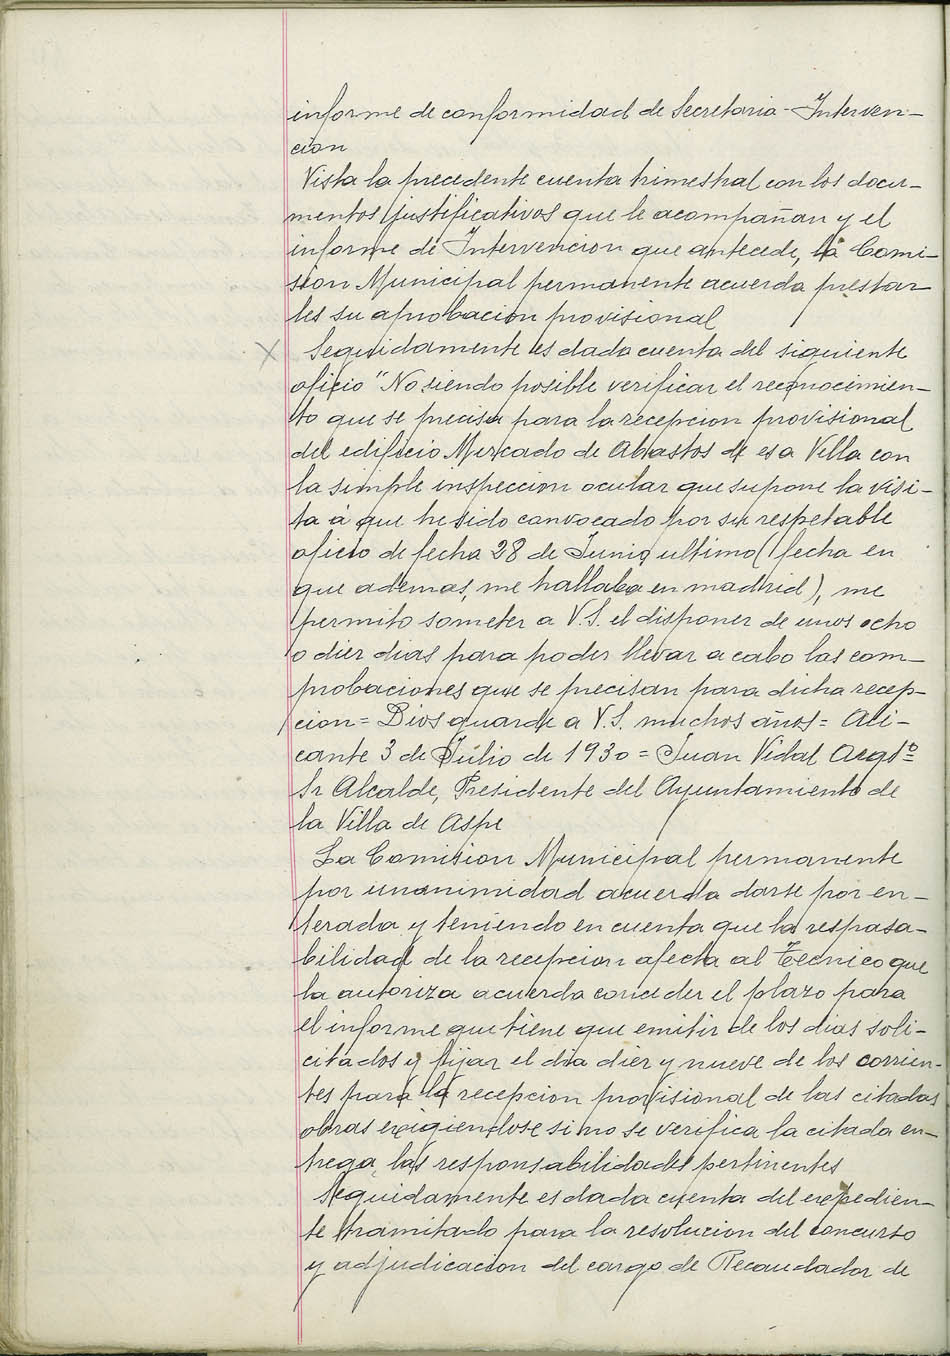 informe de conformidad de Secretaria-Interven-
cion
Vista la precedente cuenta trimestral con los docu-
mentos justificativos que le acompañan y el
informe de Intervencion que antecede, la Comi-
sion Municipal permanente acuerda prestar
les su aprobacion provisional
X Seguidamente es dada cuenta del siguiente
oficio "No siendo posible verificar el reconocimien-
to que se precisa para la recepcion provisional
del edificio Mercado de Abastos de esa Villa con
la simple inspeccion ocular que supone la visi-
ta á que he sido convocado por su respetable
oficio de fecha 28 de Junio ultimo (fecha en
que ademas, me hallaba en madrid), me
permito someter a V.S. el disponer de unos ocho
o dier dias para poder llevar a cabo las com-
probaciones que se precisan para dicha recep-
cion = Dios guarde a V.S. muchos años = Ali-
cante 3 de Júlio de 1930 = Juan Vidal Arqtº =
Sr Alcalde, Presidente del Ayuntamiento de
la Villa de Aspe
La Comision Municipal permanente
por unanimidad acuerda darse por en-
terada y teniendo en cuenta que la respasa-
bilidad de la recepcion afecta al Tecnico que
la autoriza acuerda conceder el plazo para
el informe que tiene que emitir de los dias soli-
citados y fijar el dia dier y nueve de los corrien-
tes para la recepcion provisional de las citadas
obras exigiendose si no se verifica la citada en-
trega las responsabilidades pertinentes
Seguidamente es dada cuenta del expedien-
te tramitado para la resolucion del concurso
y adjudicacion del cargo de Recaudador de